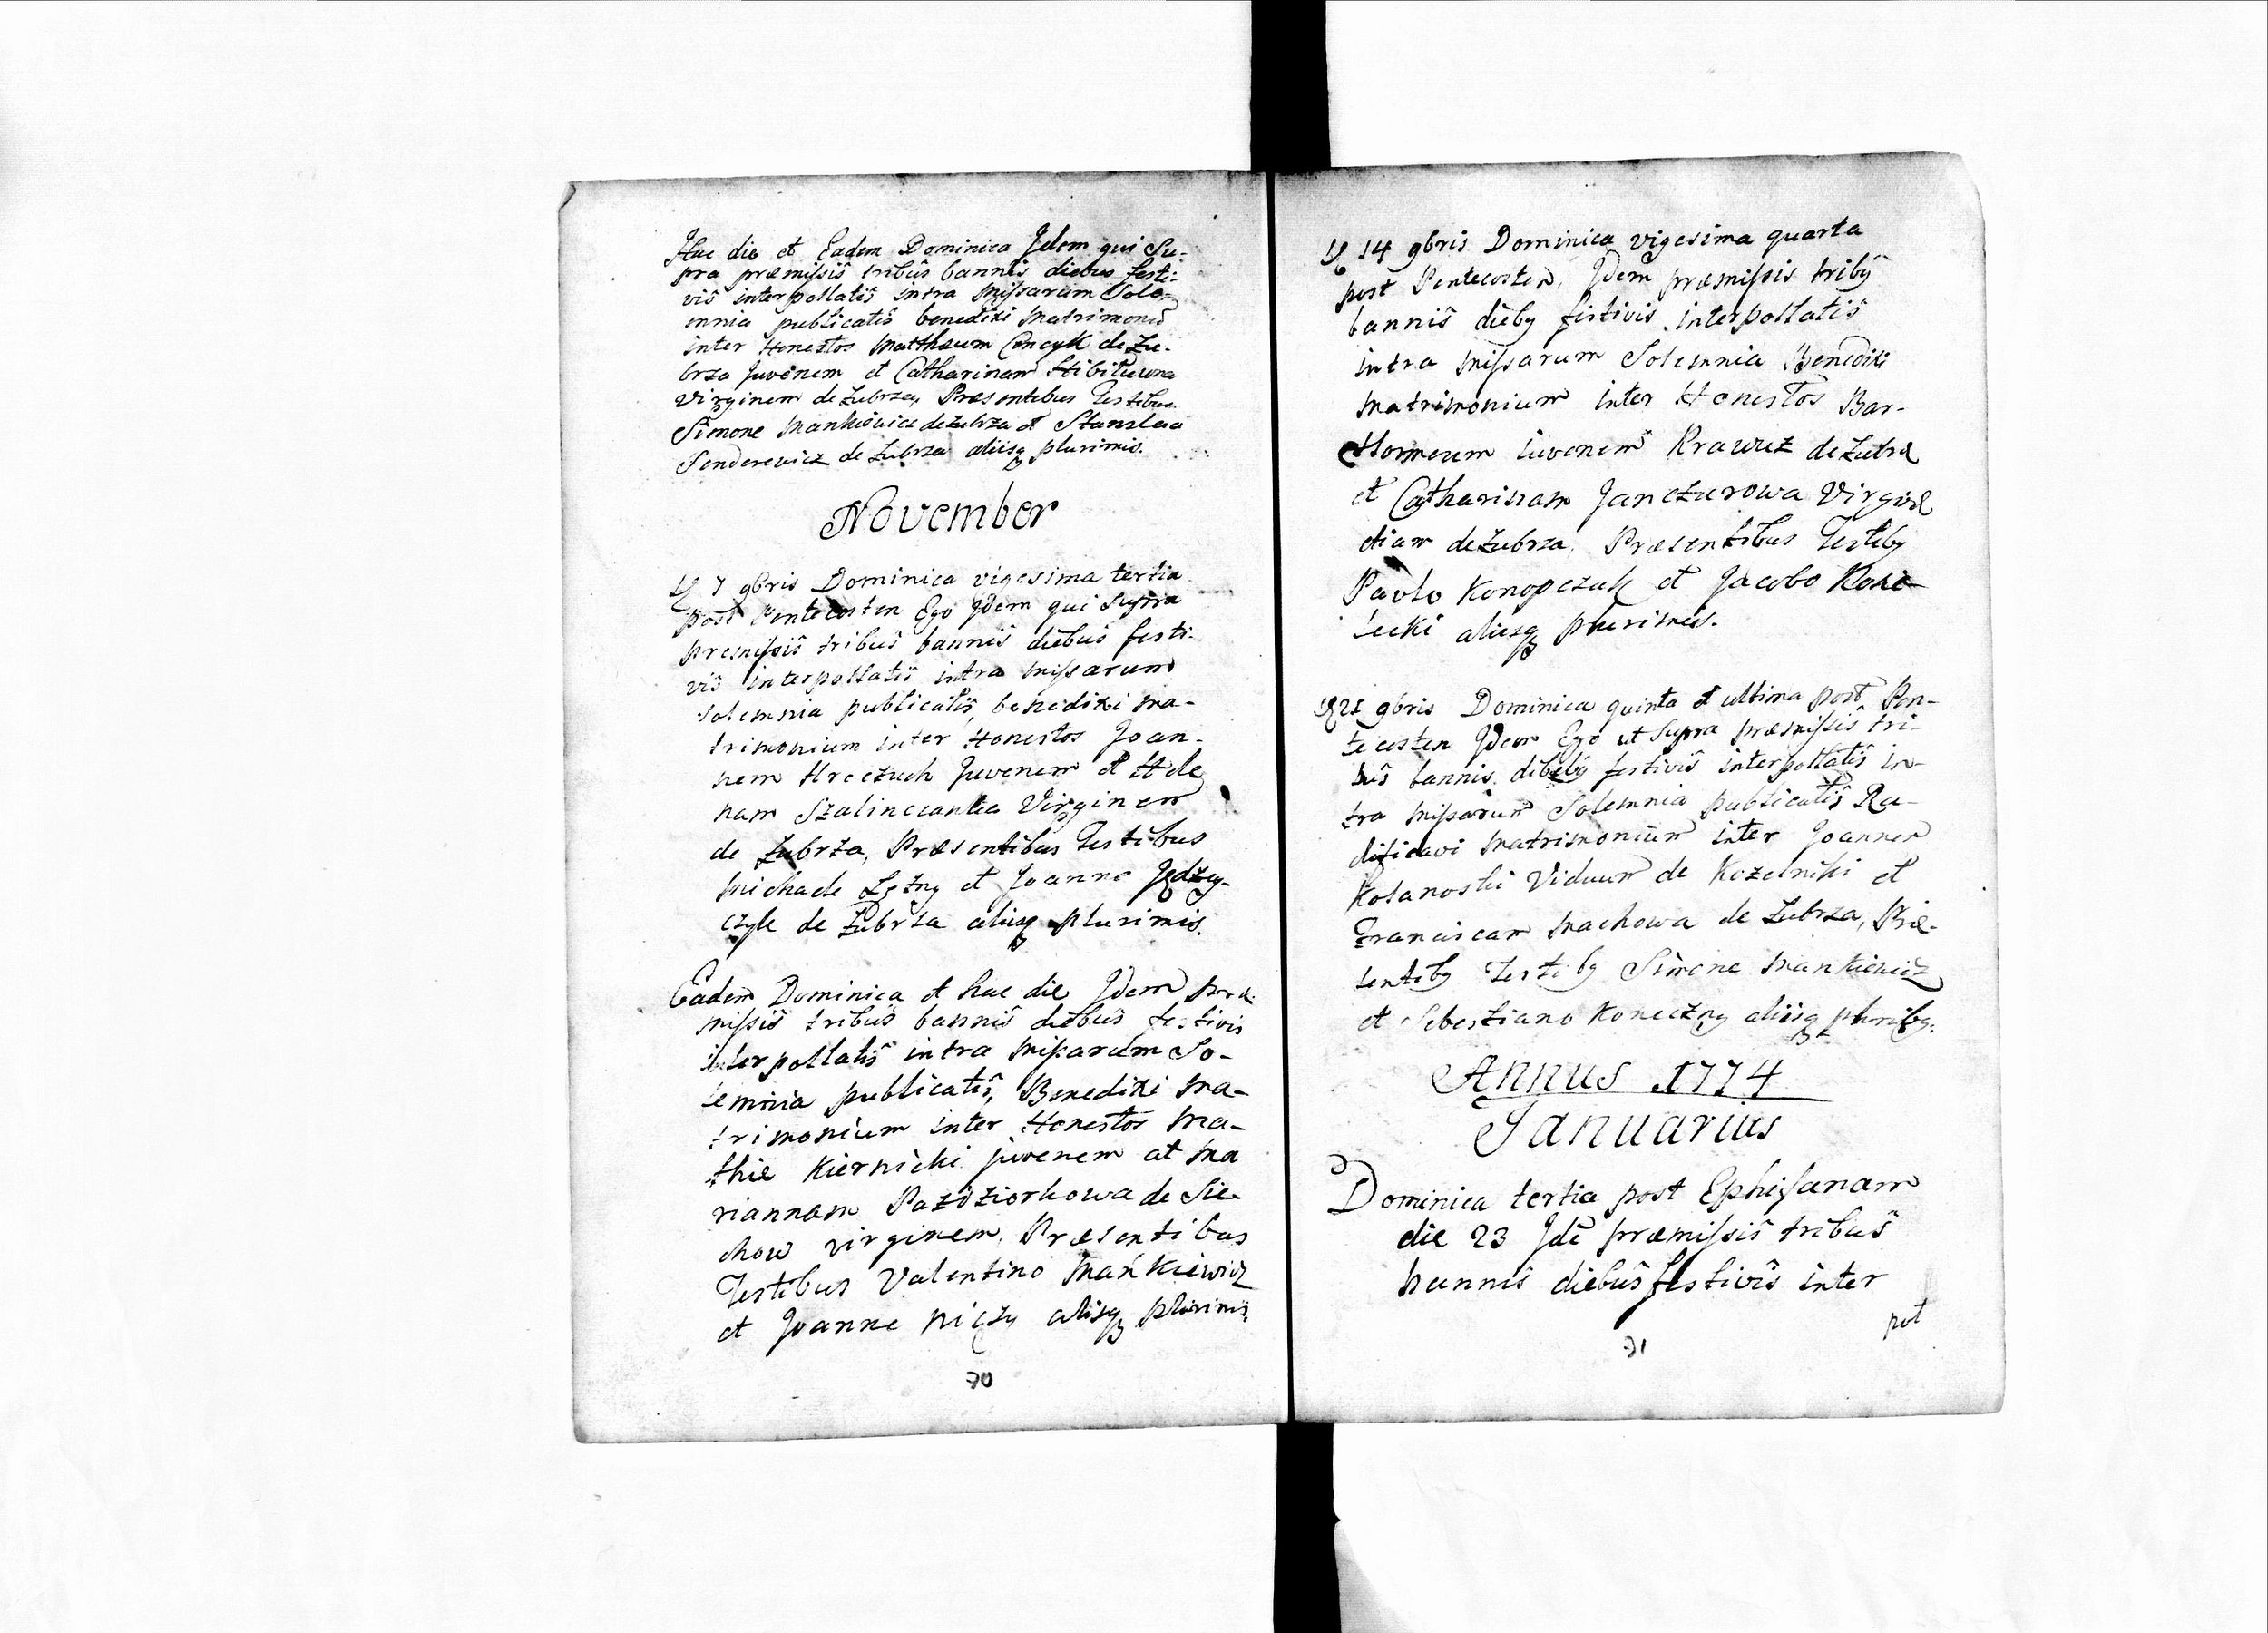 Hac die et Eadem Dominica Idem qui Su-
pra præmissis tribus bannis diebus festi-
vis interpollatis intra Missarum Sole-
mnia publicatis benedixi Matrimoniũ
inter Honestos Matthæum Cencyk de Zu-
brza Juvenem et Catharinam
Virginem de Zubrza, Præsentibus Testibus
Simone Mankiewicz de Zubrza et Stanislao
Senderewicz de Zubrza aliisq plurimis.
November
7 9bris Dominica vigesima tertia
post Pentecosten Ego Idem qui Supra
premissis tribus bannis diebus festi-
vis interpollatis intra Missarum
solemnia publicatis, benedixi Ma-
trimonium inter Honestos Joan-
nem Hreczuch Juvenem et Hele
nam Virginem
de Zubrza, Præsentibus Testibus
Michaele et Joanne Jędzey-
czyk de Zubrza aliisq plurimis.
Eadem Dominica et hac die Idem præ
missis tribus bannis diebus festivis
interpollatis intra Missarum So-
lemnia publicatis, Benedixi Ma-
trimonium inter Honestos Ma-
thiæ Kiernicki juvenem at Ma
riannam Pazdziorkowa de Sie-
chow virginem, Præsentibus
Testibus Valentino Mańkiewicz
et Joanne aliisq plurimis,
70
14 9bris Dominica vigesima quarta
post Pentecosten, Idem præmissis tribq
bannis diebq festivis interpollatis
intra Missarum Solemnia Benedixi
Matrimonium inter Honestos Bar-
thomeum iuvenem Krawcz de Zubrza
et Catharinam Janczurowa Virginẽ
etiam de Zubrza, Præsentibus Testibq
Pavlo Konopczuk et Jacobo Kono
lecki aliisq plurimis.
21 9bris Dominica quinta et ultima post Pen-
tecosten Idem Ego ut Supra præmissis tri-
bus bannis diebq festivis interpollatis in-
tra Missarum Solemnia publicatis Ra-
dificavi Matrimonium inter Joannem
Kolanoski Viduum de Kozelniki et
Franciscam Machowa de Zubrza, Præ-
sentibq Testibq Simone Mankiewicz
et Sebestiano Koneczny aliisq pluribq.
Annus 1774
Januarius
Dominica tertia post Ephifanam
die 23 Idẽ præmissis tribus
bannis diebus festivis inter
pol
71